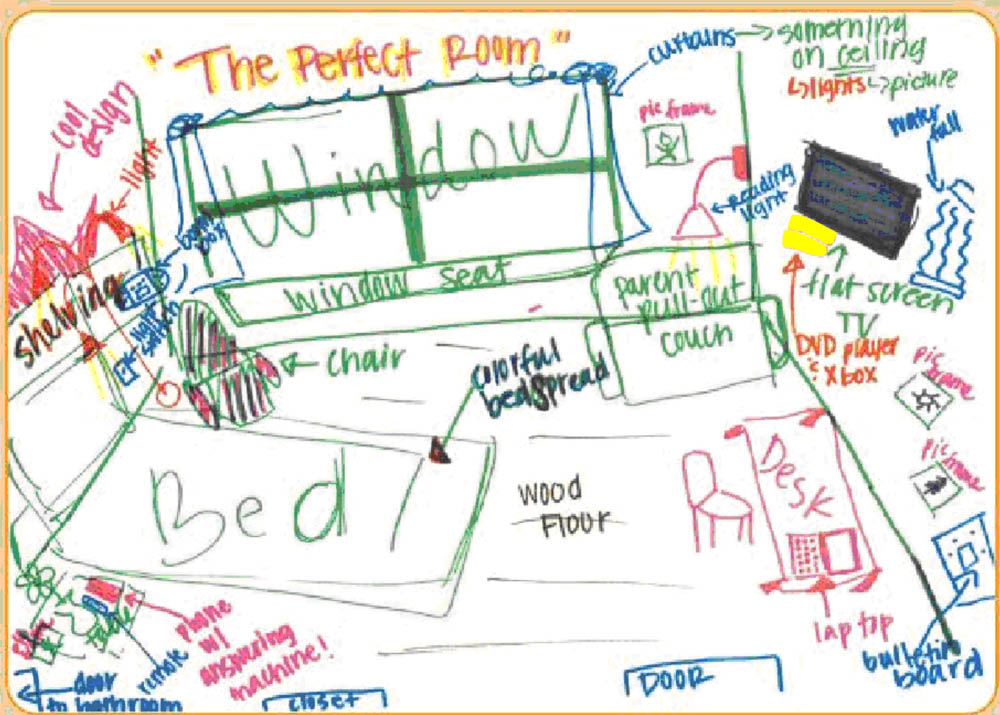 "The Perfect Room"
curtains
somerning
on ceiling
lights
picture
cool
design
light
Window
pic frame
reading
light
water
fall
boom
box
shelving
light
switch
window seat
parent
pull-out
couch
flat screen
TV
DVD player
& Xbox
chair
colorful
bedspread
pic
frame
pic
frame
Bed
WOOD
FLOUR
Desk
lap top
bulletin
board
phone
w/
answering
machine!
remote
door
to bathroom
closet
DOOR